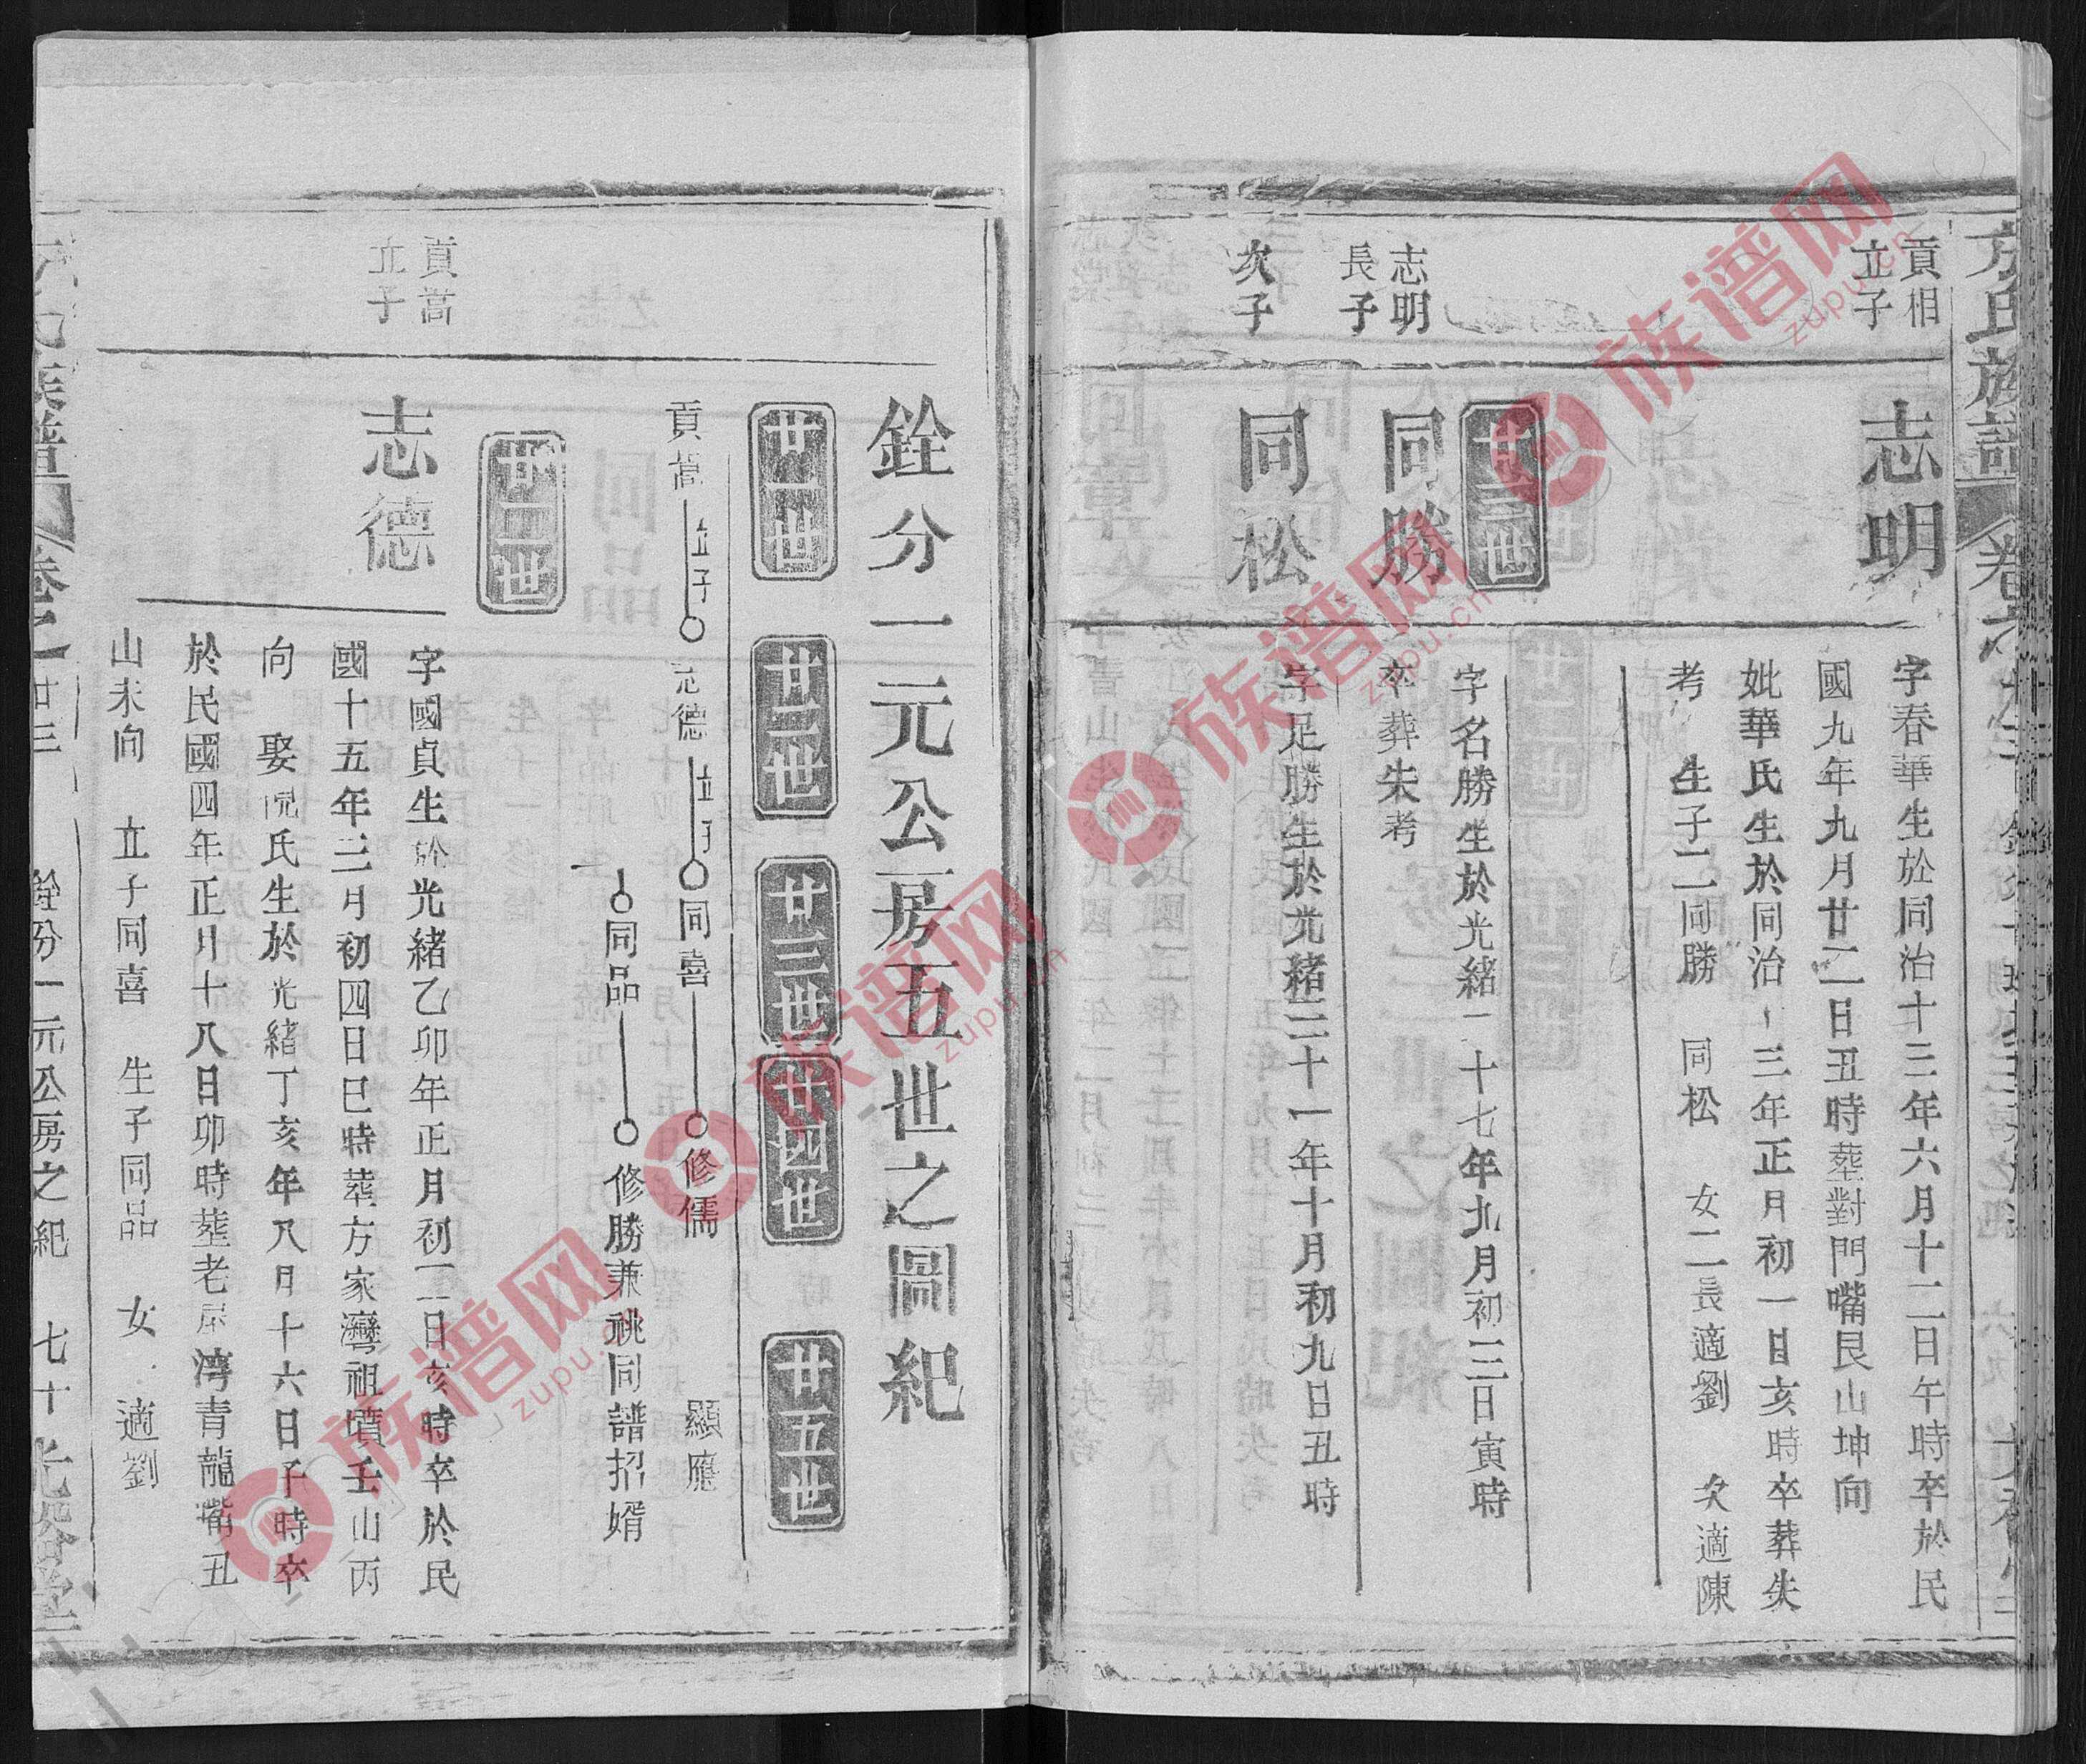 方氏族譜
貢相
立子
志明
字春華生於同治十三年六月十二日午時卒於民
國九年九月廿二日丑時葬對門嘴艮山坤向
妣華氏生於同治十三年正月初一日亥時卒葬失
考　生子二同勝　同松　女二長適劉　次適陳
廿三世
志明
長子
同勝
字名勝生於光緒二十七年九月初三日寅時
卒葬失考
次子
同松
字足勝生於光緒三十一年十月初九日丑時
銓分一元公房五世之圖紀
廿一世
廿二世
廿三世
廿四世
廿五世
貢嵩
立子
志德
立子
同喜
修儒
顯應
同品
修勝兼祧同譜招婿
廿二世
貢嵩
立子
志德
字國貞生於光緒乙卯年正月初二日亥時卒於民
國十五年三月初四日巳時葬方家灣祖墳壬山丙
向　娶倪氏生於光緒丁亥年八月十六日子時卒
於民國四年正月十八日卯時塟老屋湾青龍嘴丑
山未向　立子同喜　生子同品　女　適劉
方氏族譜
卷之廿三
銓分一元公房之紀
七十